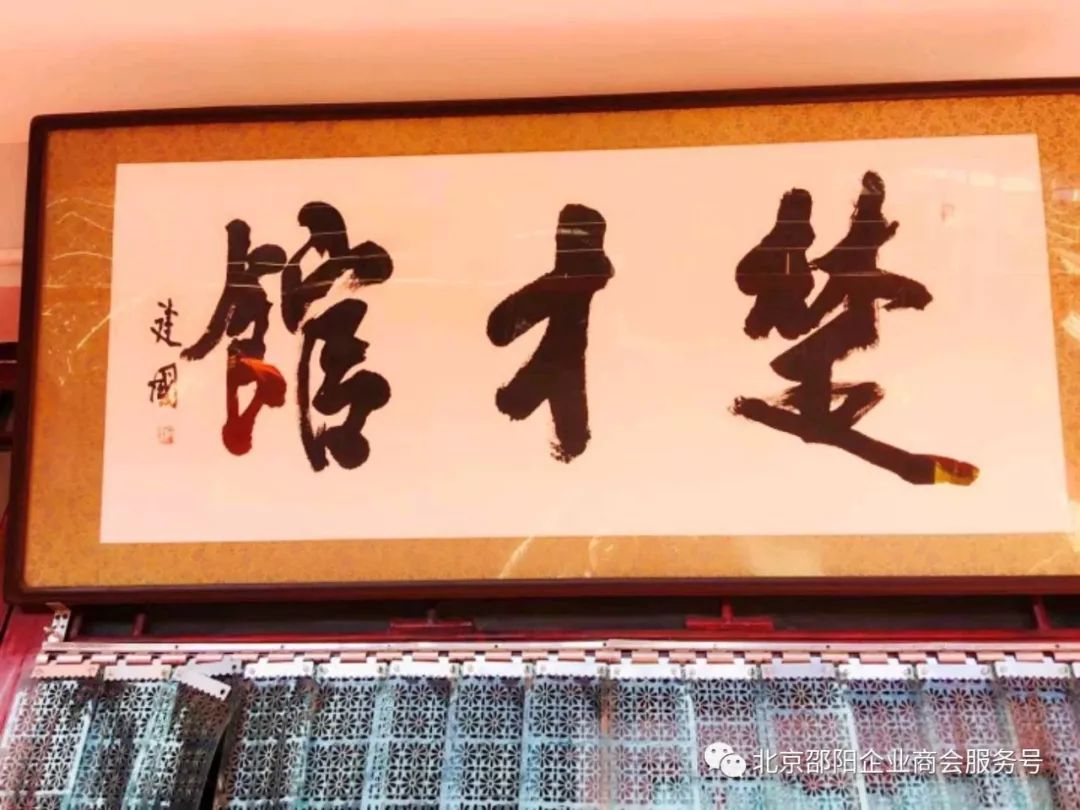 楚才館
建國
北京邵阳企业商会服务号